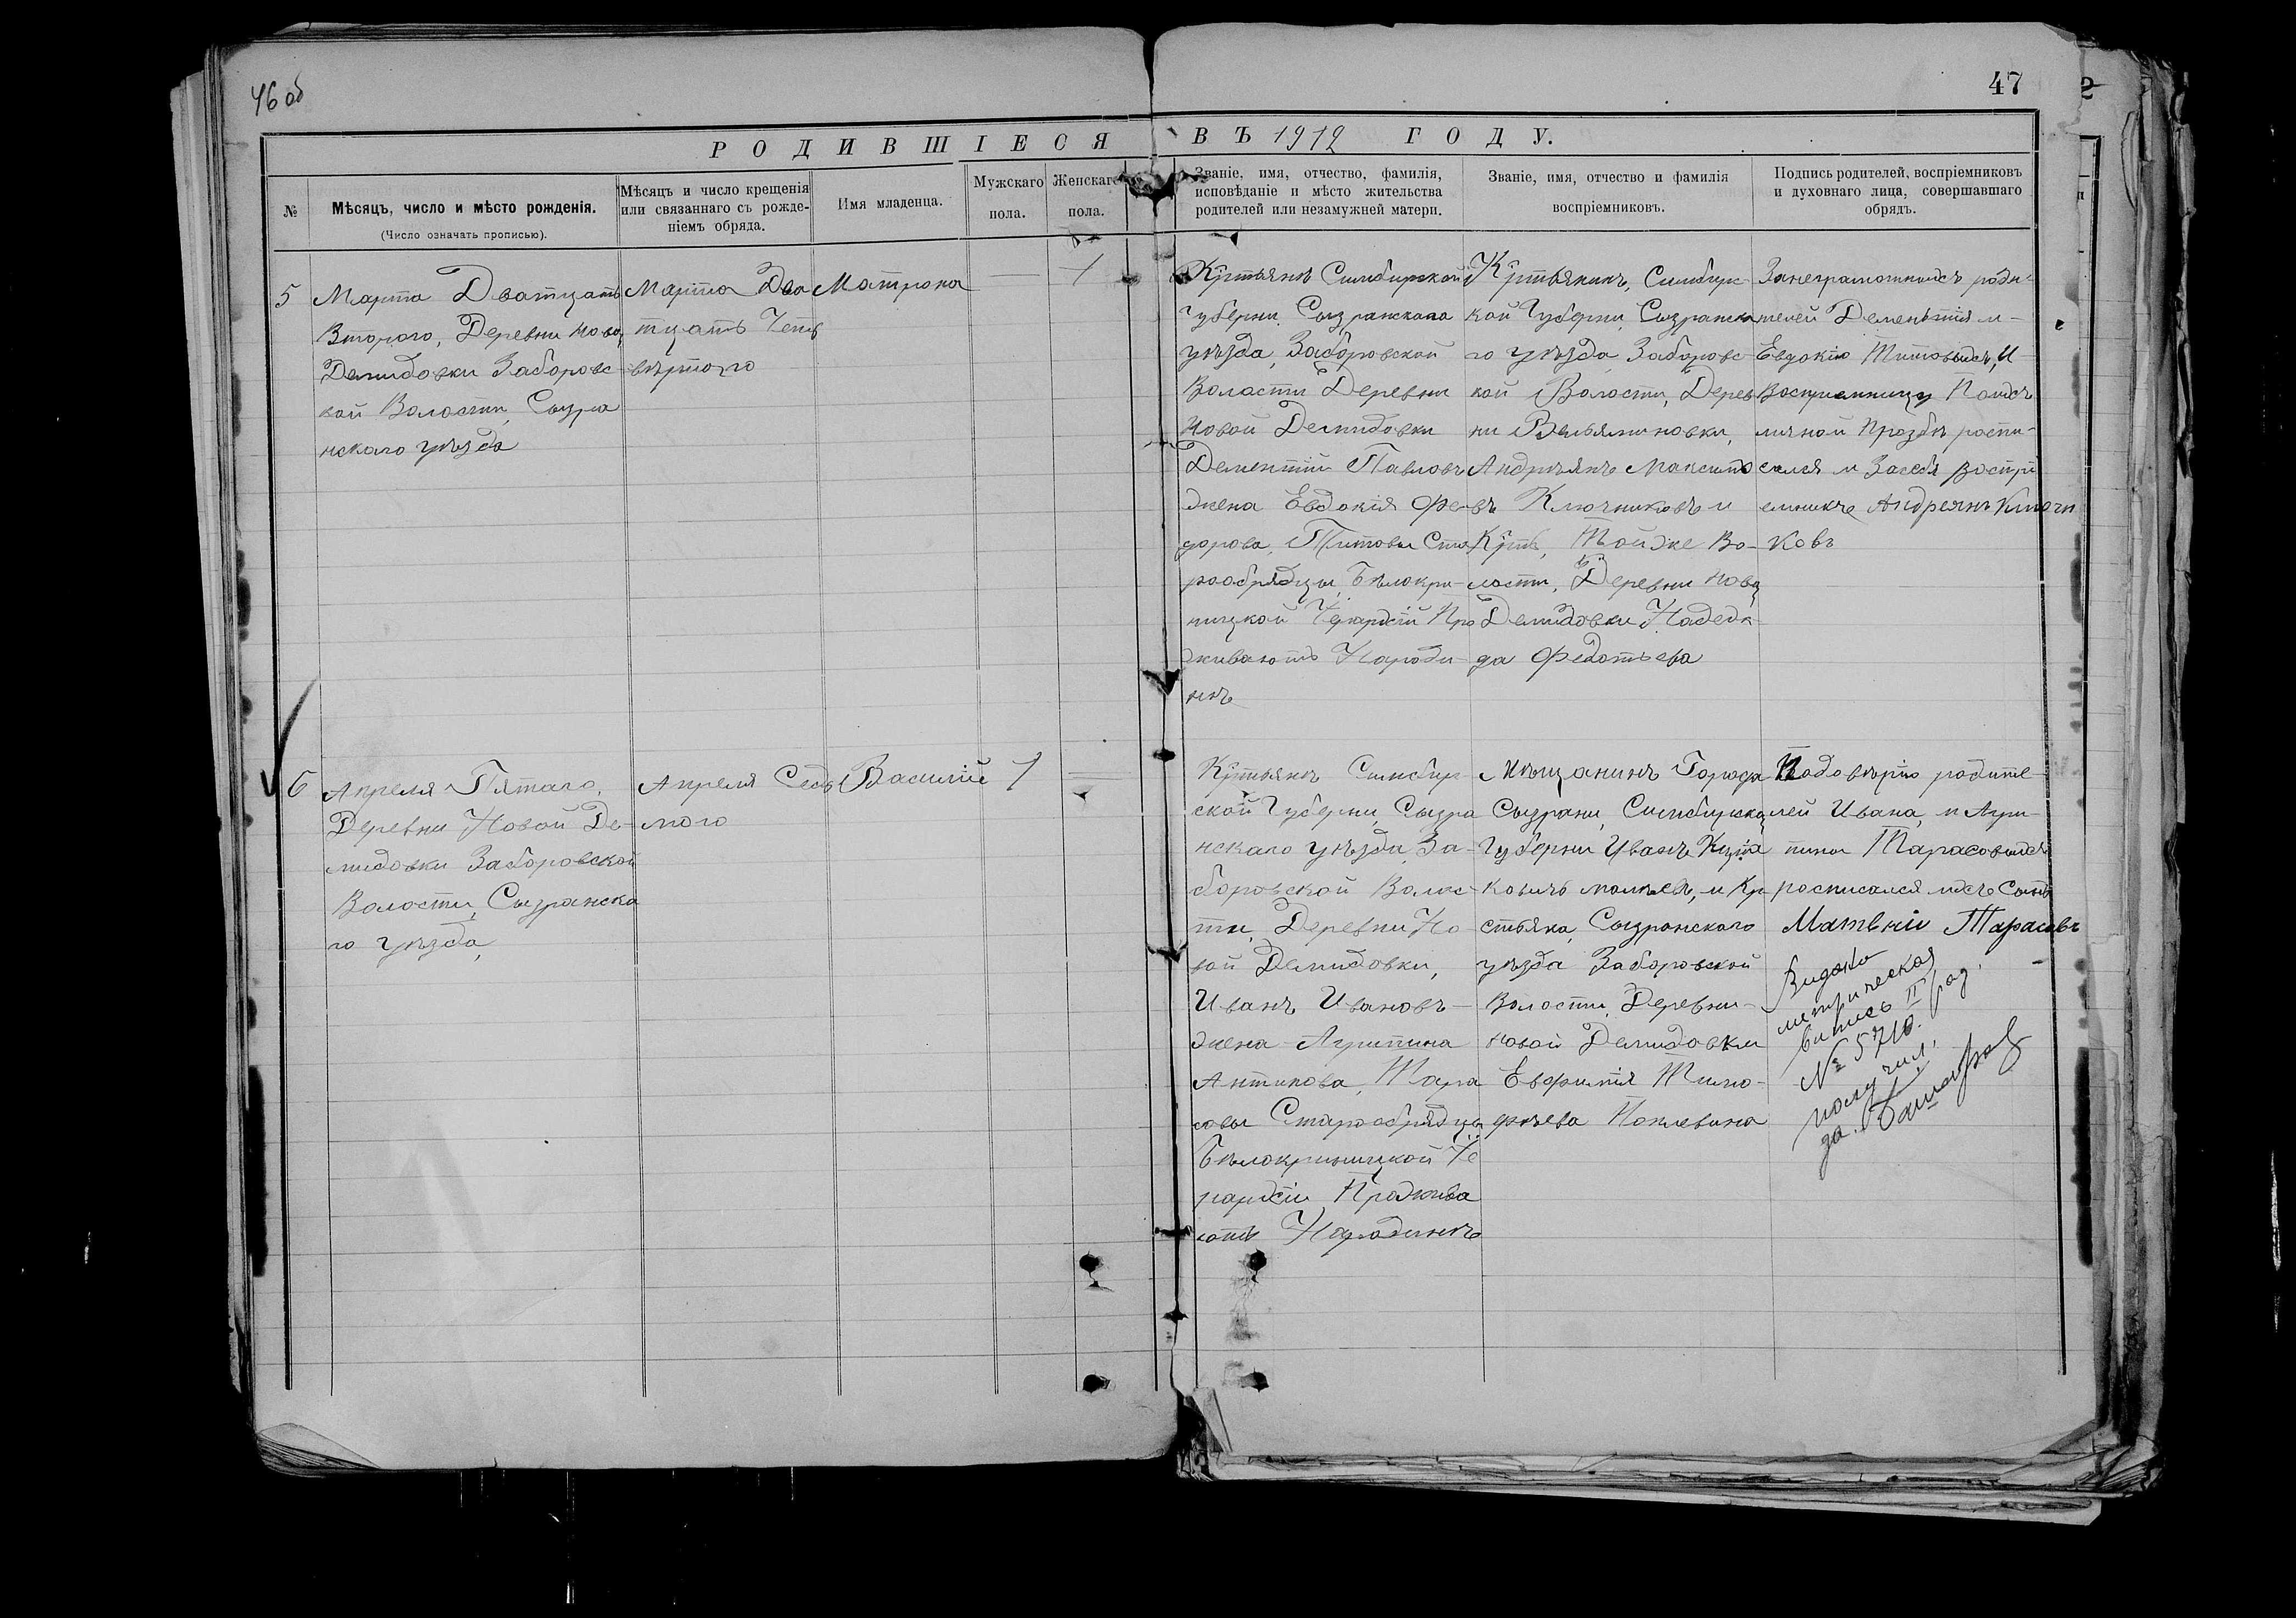 46 об
47
РОДИВШІЕСЯ ВЪ 1912 ГОДУ.
№
Мѣсяцъ, число и мѣсто рожденія.
(Число означать прописью).
Мѣсяцъ и число крещенія
или связаннаго съ рожде-
ніемъ обряда.
Имя младенца.
Мужскаго
пола.
Женскаго
пола.
Званіе, имя, отчество, фамилія,
исповѣданіе и мѣсто жительства
родителей или незамужней матери.
Званіе, имя, отчество и фамилія
воспріемниковъ.
Подпись родителей, воспріемниковъ
и духовнаго лица, совершавшаго
обрядъ.
5
Марта Дватцать
Второго, Деревни Новой
Демидовки Заборовс-
кой Волости, Сызра
нскаго уѣзда
Марта Два
тцать Четь
вѣртого
Матрона
—
1
Крстьянѣ Симбирской
Губерни, Сызранскаго
уѣзда, Заборовской
Воласти Деревни
Новой Демидовки
Дементій Павловъ
жена Евдокія Фе-
дорова, Титовы Ста
рообрядцы, Бѣлокри-
ницкой Іерархій Про
живаютъ Народи-
нѣ
Крстьянинъ, Симбирс-
кой Губерни, Сызранска
го уѣзда, Заборовс-
кой Волости, Дерев
ни Вельяминовки,
Андрѣянъ Максимо
въ Ключниковъ и
Крть, Тойже Во-
лости, Деревни Новой
Демидовки Надеж-
да Федотьева
Занеграмотныхъ роди-
телей Дементія и-
Евдокію Титовыхъ, И-
Восприемницу Поихъ
личной Прозбѣ роспи-
сался и Засебя воспрі
емникъ Андреянъ Ключн
ковъ
6
Апреля Пятаго,
Деревни Новой Де-
мидовки Заборовской
Волости, Сызранска
го уѣзда,
Апреля Седь
мого
Василій
1
—
Крстьянѣ Симбир
ской Губерни, Сызра
нскаго уѣзда, За-
боровской Волос-
ти, Деревни Но
вой Демидовки,
Иванъ Ивановъ-
жена Агрипина
Антипова, Тара
совы Старообрядцы
Бѣлокриницкой Іе
рархіи Прожива
ютъ Народинѣ
Мѣщанинъ Города
Сызрани, Симбирской
Губерни Иванъ
и Кр
стьяка, Сызранского
уѣзда Заборовской
Волости, Деревни-
Новой Демидовки
Евфимія Тимо-
фѣева
Подовѣрію родите-
лей Ивана, и Агри-
пины Тарасовыхъ
росписался ихъ Сынъ
Матвній Тарасовъ
метрическая
выпись II
№ 5710.
получил.